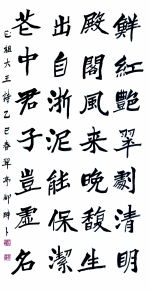 鮮紅艷翠劇清明
殿閣風来晚馥生
出自淤泥能保潔
花中君子豈虛名
正祖大王詩乙巳春翠亭